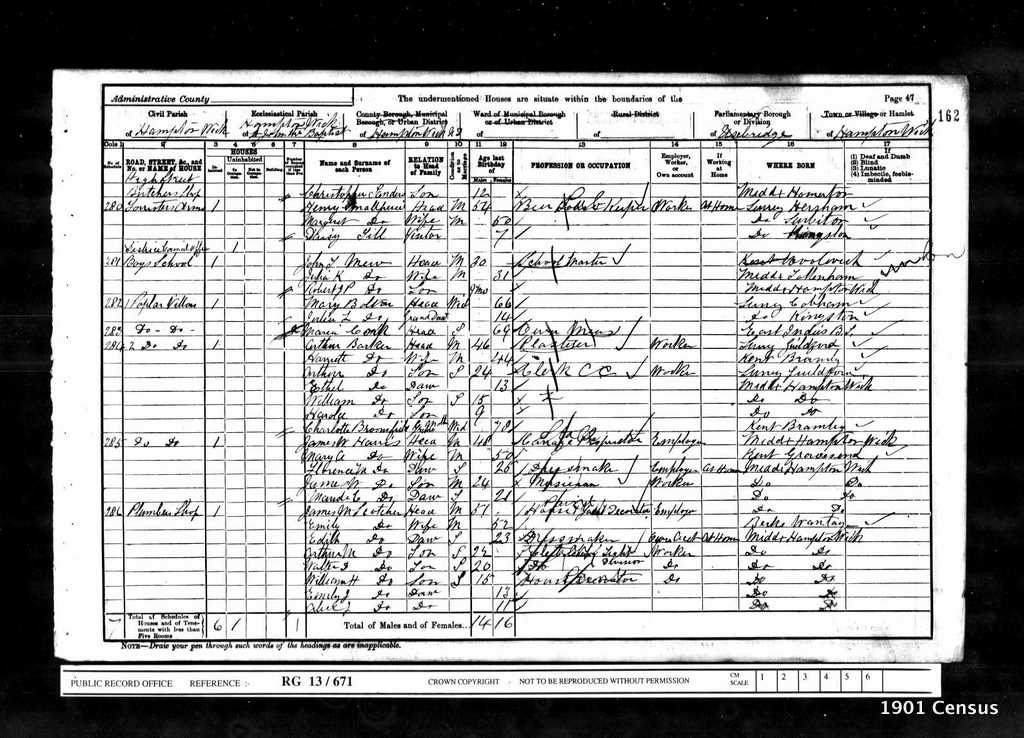 Administrative County
The undermentioned Houses are situate within the boundaries of the
Page 47
162
Civil Parish
of Hampton Wick
Ecclesiastical Parish
Hampton Wick
of St John the Baptist
County Borough, Municipal Borough, or Urban District
of Hampton Wick U D
Ward of Municipal Borough or of Urban District
of
Rural District
of
Parliamentary Borough or Division
of Uxbridge
Town or Village or Hamlet
of Hampton Wick
Cols 1 2 3 4 5 6 7 8 9 10 11 12 13 14 15 16 17
ROAD, STREET, &c., and No. or NAME of HOUSE
HOUSES
Uninhabited
Name and Surname of each Person
RELATION to Head of Family
Age last Birthday of
PROFESSION OR OCCUPATION
Employer, Worker, or Own account
If Working at Home
WHERE BORN
(1) Deaf and Dumb
(2) Blind
(3) Lunatic
(4) Imbecile, feeble-minded
High Street
Butchers Shop Christopher Son 12 Midd x Homerton
280 Foresters Arms 1 Henry Head M 54 Beer Keeper Worker At Home Surrey Hersham
Margaret Do Wife M 50 Do Surbiton
Daisy Visitor 7 Do Kingston
1
281 Boys School 1 John T Head M 30 School Master Kent Woolwich
Julia K Do Wife M 31 Midd x Tottenham
Robert J P Do Son 9 mo Midd x Hampton Wick
282 1 Poplar Villas 1 Mary Head Wid 66 Surrey Cobham
L Do Grand Daur 14 Do Kingston
283 Do - Do - Maria Cork Head S 69 Own Means East Indies B.S.
284 2 Do Do 1 Arthur Barker Head M 46 Plasterer Worker Surrey Guildford
Harriett Do Wife M 44 Kent Bramley
Arthur Do Son S 24 Clerk C C Worker Surrey Guildford
Ethel Do Daur 13 Midd x Hampton Wick
William Do Son S 15 Do Do
Harold Do Son 9 Do Do
Charlotte Wid 78 Kent Bramley
285 Do Do 1 James W Harris Head M 48 Employer Midd x Hampton Wick
Mary A Do Wife M 50 Kent Gravesend
Florence M Do Daur S 25 Dressmaker Employer At Home Midd x Hampton Wick
James W Do Son M 24 Musician Worker Do Do
Maude E Do Daur S 21 Do Do
286 Plumbers Shop 1 James M Head M 57 House Decorator Employer Do Do
Emily Do Wife M 52 Berks Wantage
Edith Do Daur S 23 Dressmaker Own Acct At Home Midd x Hampton Wick
Arthur M Do Son S 22 Electric Light Worker Do Do
Walter J Do Son S 20 Do Do Do Do
William H Do Son S 15 House Decorator Do Do Do
Emily J Do Daur 13 Do Do
J Do Do 11 Do Do
Total of Schedules of Houses and of Tenements with less than Five Rooms
6 1 1
Total of Males and of Females... 14 16
NOTE—Draw your pen through such words of the headings as are inapplicable.
PUBLIC RECORD OFFICE REFERENCE :- RG 13/671 CROWN COPYRIGHT - NOT TO BE REPRODUCED WITHOUT PERMISSION CM SCALE 1 2 3 4 5 6
1901 Census